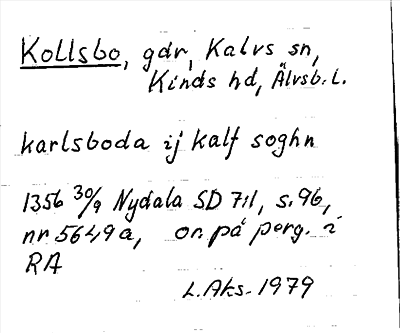 Kollsbo, gdr, Kalvs sn,
Kinds hd, Älvsb. L.
karlsboda ij kalf soghn
1356 30/9 Nydala SD 7:1, s. 96,
nr 5649a, or. på perg. i
RA
L. Aks. 1979